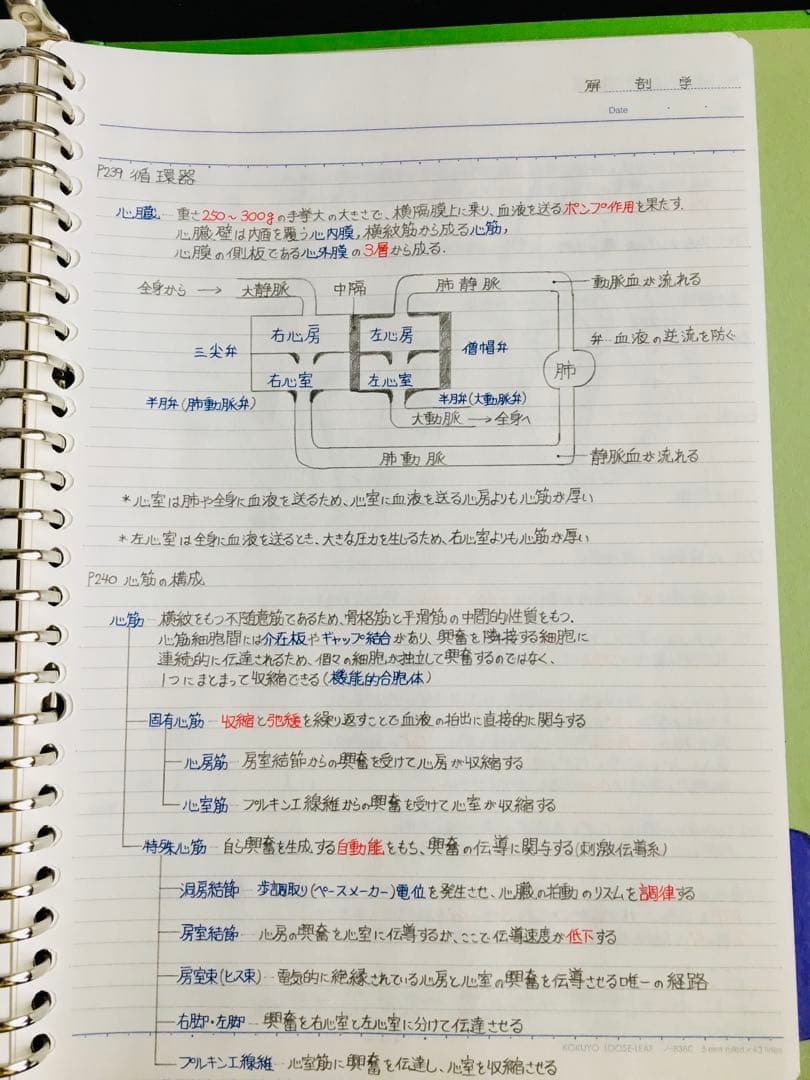 解剖学
Date
P239 循環器
心臓 重さ250~300gの手拳大の大きさで、横隔膜上に乗り、血液を送るポンプ作用を果たす.
心臓壁は内面を覆う心内膜,横紋筋から成る心筋,
心膜の側板である心外膜の3層から成る.
全身から → 大静脈 中隔 肺静脈 動脈血が流れる
右心房 左心房
三尖弁 僧帽弁 弁…血液の逆流を防ぐ
右心室 左心室 肺
半月弁(肺動脈弁) 半月弁(大動脈弁)
大動脈 → 全身へ
肺動脈 静脈血が流れる
*心室は肺や全身に血液を送るため、心室に血液を送る心房よりも心筋が厚い
*左心室は全身に血液を送るとき、大きな圧力を生じるため、右心室よりも心筋が厚い
P240 心筋の構成
心筋 横紋をもつ不随意筋であるため、骨格筋と平滑筋の中間的性質をもつ.
心筋細胞間には介在板やギャップ結合があり、興奮を隣接する細胞に
連続的に伝達されるため、個々の細胞が独立して興奮するのではなく、
1つにまとまって収縮できる(機能的合胞体)
固有心筋 収縮と弛緩を繰り返すことで血液の拍出に直接的に関与する
心房筋 房室結節からの興奮を受けて心房が収縮する
心室筋 プルキンエ線維からの興奮を受けて心室が収縮する
特殊心筋 自ら興奮を生成する自動能をもち、興奮の伝導に関与する(刺激伝導系)
洞房結節 歩調取り(ペースメーカー)電位を発生させ、心臓の拍動のリズムを調律する
房室結節 心房の興奮を心室に伝導するが、ここで伝導速度が低下する
房室束(ヒス束) 電気的に絶縁されている心房と心室の興奮を伝導させる唯一の経路
右脚・左脚 興奮を右心室と左心室に分けて伝達させる
KOKUYO LOOSE-LEAF
プルキンエ線維 心室筋に興奮を伝達し、心室を収縮させる